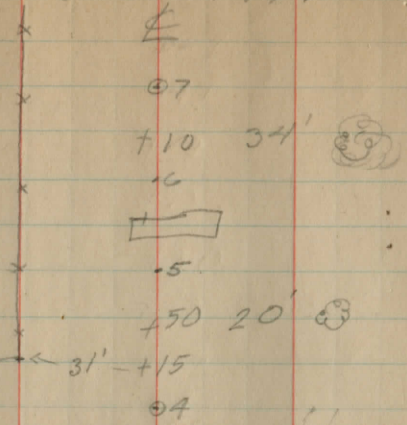 ℄
7
+10 34'
6
5
+50 20'
31' +15
4